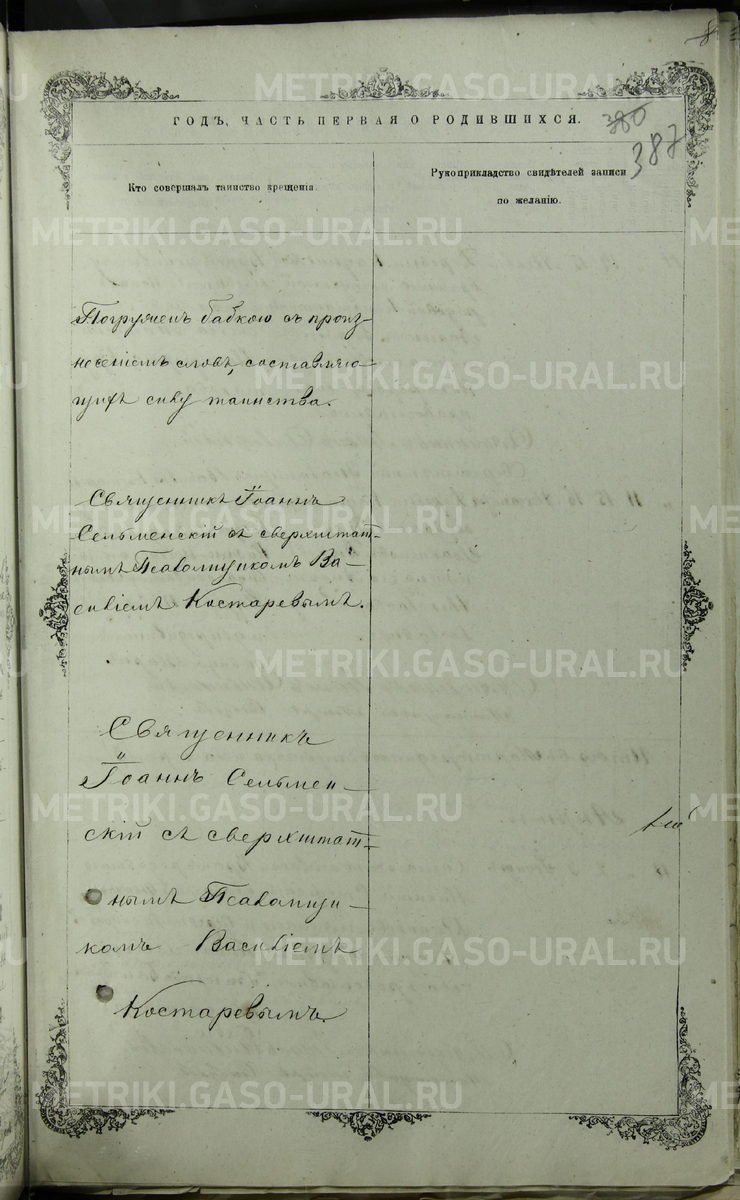 ГОДЪ, ЧАСТЬ ПЕРВАЯ О РОДИВШИХСЯ.
380
387
Кто совершалъ таинство крещенія.
Рукоприкладство свидѣтелей записи
по желанію.
Погруженъ бабкою съ произ-
несеніемъ словъ, составляю-
щихъ силу таинства.
Священникъ Іоаннъ
Сельменскій съ сверхштат-
нымъ Псаломщикомъ Ва-
силіемъ Костаревымъ.
Священникъ
Іоаннъ Сельмен-
скій съ сверхштат-
нымъ Псаломщи-
комъ Василіемъ
Костаревымъ.
METRIKI.GASO-URAL.RU